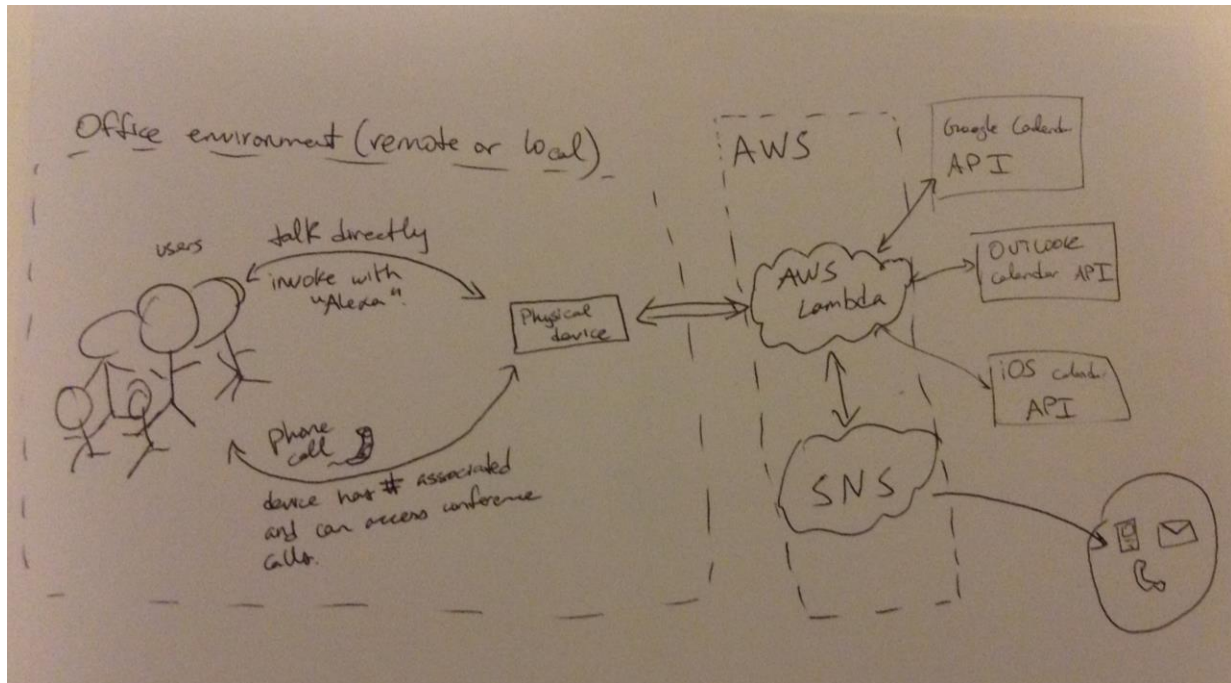 Office environment (remote or local)
users
talk directly
invoke with
"Alexa".
Physical
device
phone
call
device has # associated
and can access conference
calls.
AWS
AWS
Lambda
SNS
Google Calendar
API
OUTLOOK
calendar API
iOS calendar
API